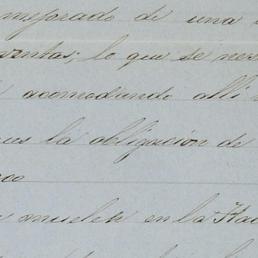 mejorado de una
rentas, lo que se ver
acomodando alli
es la obligacion de
muelle en la Hac